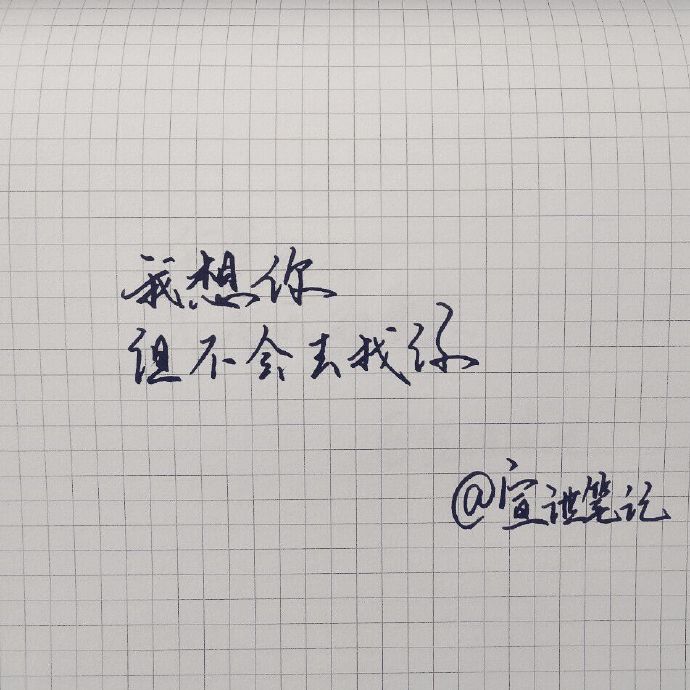 我想你
但不会去找你
@宣谁笔记